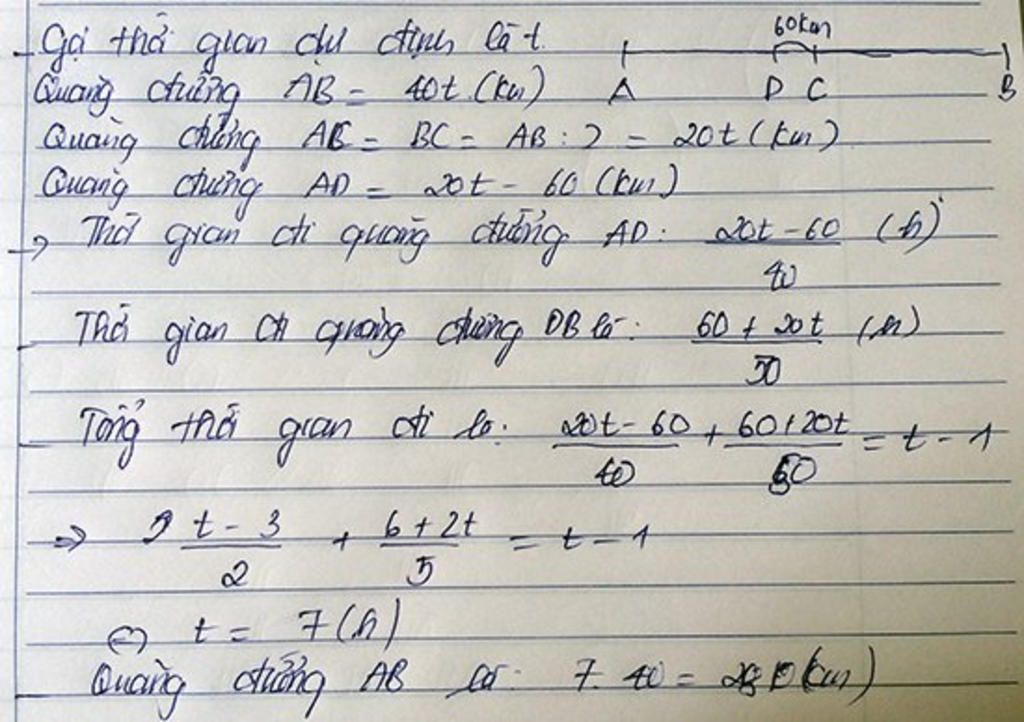 Gọi thời gian dự định là t.
60km
A D C B
Quãng đường AB = 40t (km)
Quãng đường AC = BC = AB : 2 = 20t (km)
Quãng đường AD = 20t - 60 (km)
→ Thời gian đi quãng đường AD: (20t - 60)/40 (h)
Thời gian đi quãng đường DB là: (60 + 20t)/50 (h)
Tổng thời gian đi là: (20t - 60)/40 + (60 + 20t)/50 = t - 1
=> (t - 3)/2 + (6 + 2t)/5 = t - 1
<=> t = 7 (h)
Quãng đường AB là: 7. 40 = 280 (km)